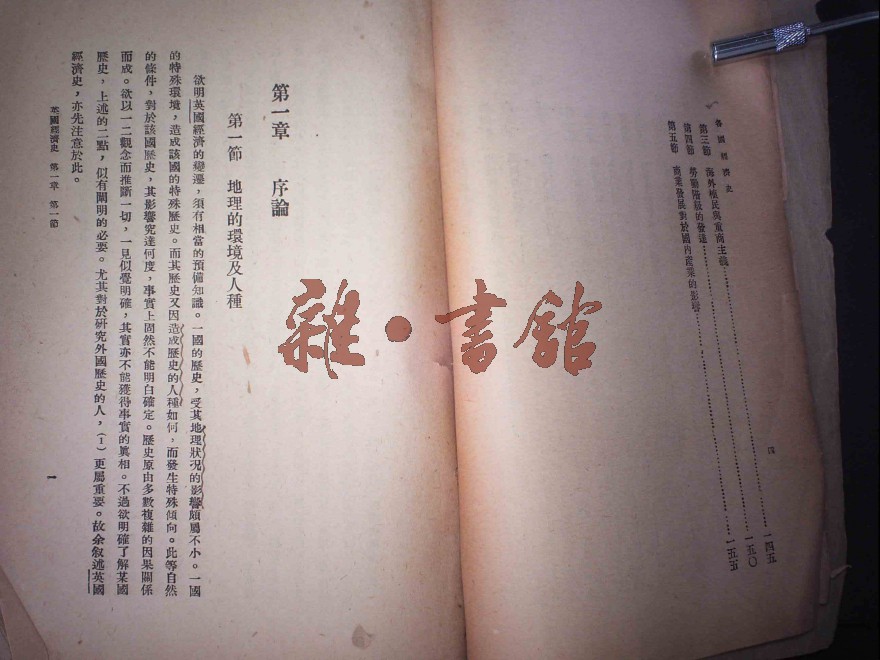 各國經濟史
第三節　海外植民與重商主義……一四五
第四節　勞動階級的發達……一五〇
第五節　商業發展對於國內產業的影響……一五五
四
第一章　序論
第一節　地理的環境及人種
欲明英國經濟的變遷，須有相當的預備知識。一國的歷史，受其地理狀況的影響頗屬不小。一國
的特殊環境，造成該國的特殊歷史。而其歷史又因造成歷史的人種如何，而發生特殊傾向。此等自然
的條件，對於該國歷史，其影響究達何度，事實上固然不能明白確定。歷史原由多數複雜的因果關係
而成。欲以一二觀念而推斷一切，一見似覺明確，其實亦不能獲得事實的眞相。不過欲明確了解某國
歷史，上述的二點，似有闡明的必要。尤其對於研究外國歷史的人，（1）更屬重要。故余敘述英國
經濟史，亦先注意於此。
英國經濟史　第一章　第一節
一
雜·書館